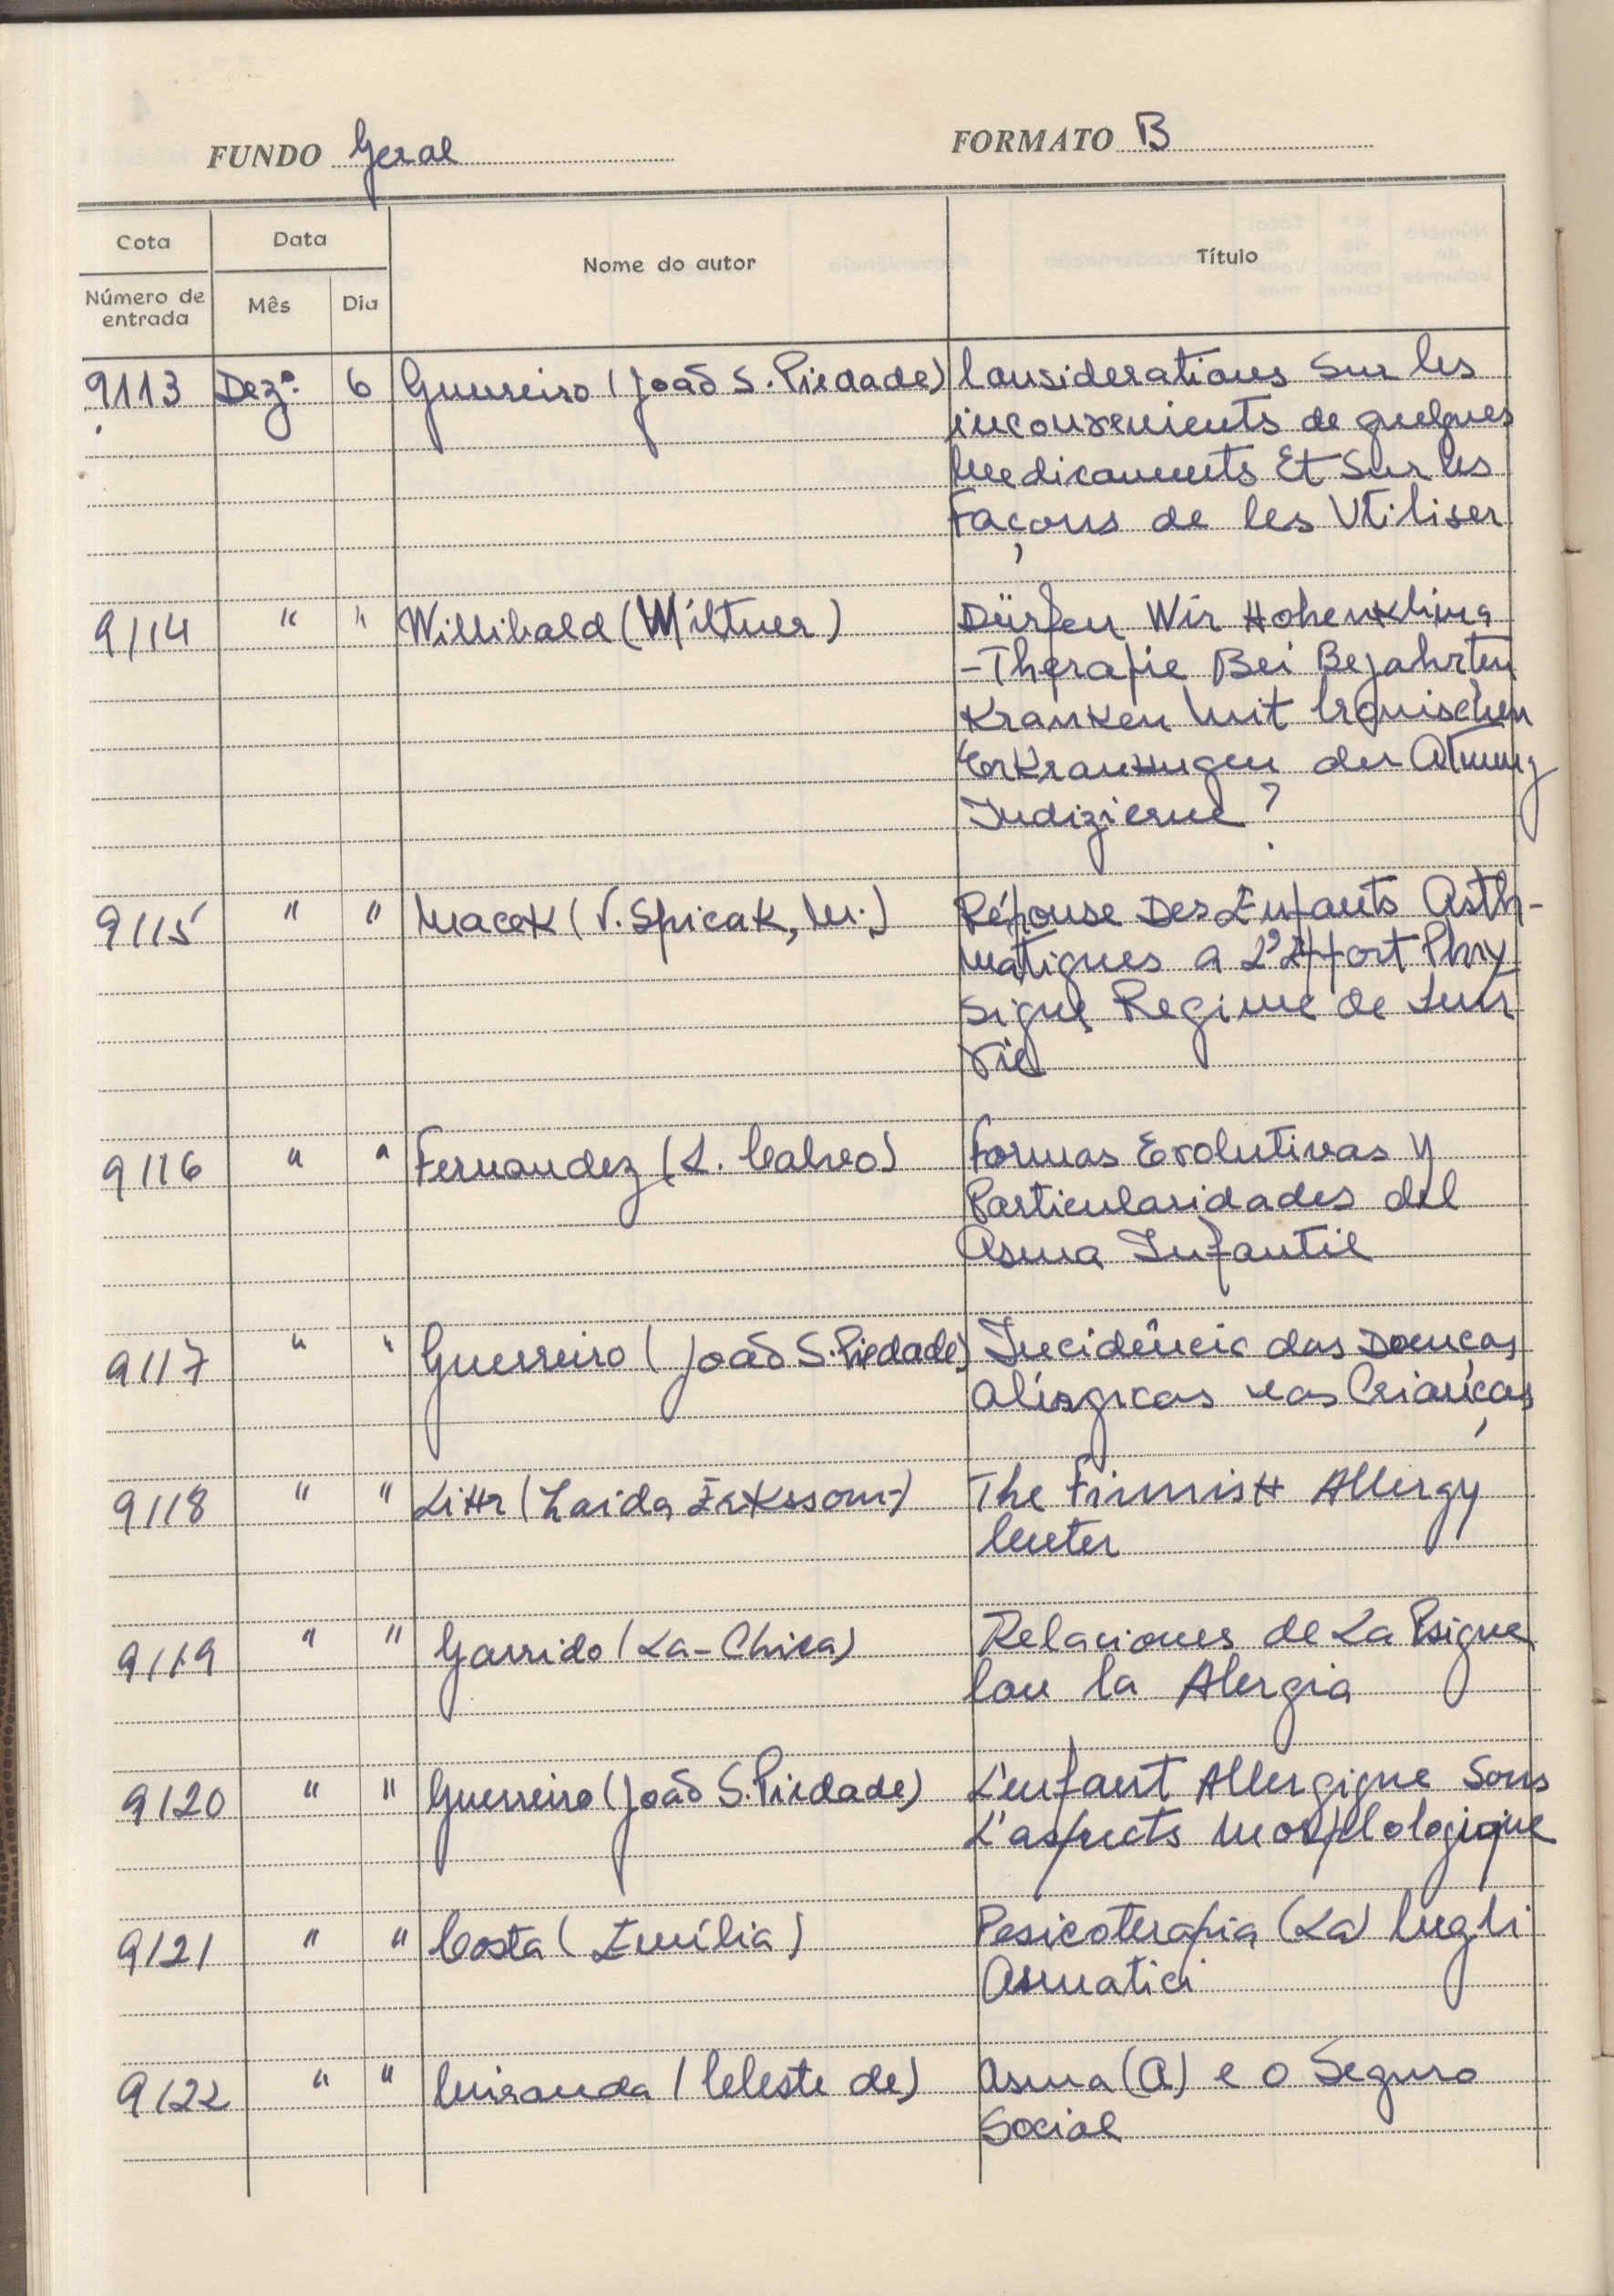 FUNDO Geral FORMATO B
Cota Data Nome do autor Título
Número de entrada Mês Dia
9113 Dez.º 6 Guerreiro (João S. Piedade) Considerations Sur les
inconvenients de quelques
Medicaments Et Sur les
Façons de les Utiliser
9114 " " Willibald (Miltner) Dürfen Wir Hohenklima
-Therapie Bei Bejahrten
Kranken Mit Cronischen
Erkrankungen der Atmung
Indizierne?
9115 " " Macek (V. Spicak, M.) Réponse Des Enfants Asth-
matiques a L'Effort Phy
sique Regime de Leur
Vie
9116 " " Fernandez (L. Calvo) Formas Evolutivas Y
Particularidades del
Asma Infantil
9117 " " Guerreiro (João S. Piedade) Incidência das Doenças
Alérgicas nas Crianças
9118 " " (Zaida Erikssom-) The Finnish Allergy
Center
9119 " " Garrido (La-Chica) Relaciones de La Psique
Con la Alergia
9120 " " Guerreiro (João S. Piedade) L'enfant Allergique Sous
L'aspects Morphologique
9121 " " Costa (Emília) Pesicoterapia (La) Negli
Asmatici
9122 " " Miranda (Celeste de) Asma (A) e o Seguro
Social